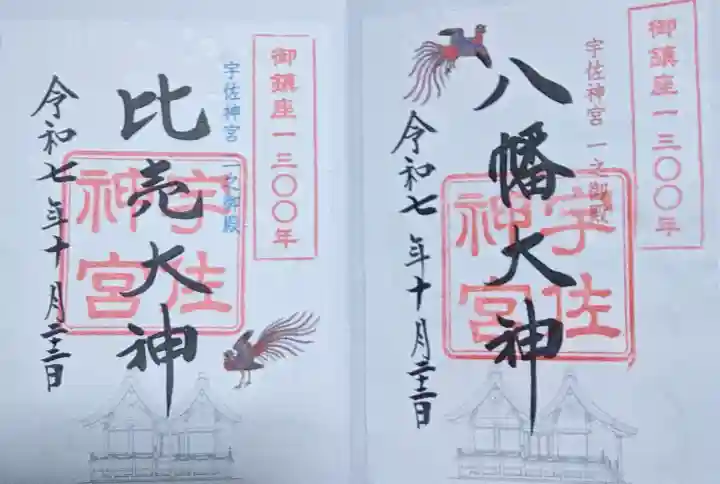 御鎮座一三〇〇年
宇佐神宮 一之御殿
八幡大神
宇佐神宮
令和七年十月二十二日
御鎮座一三〇〇年
宇佐神宮 二之御殿
比売大神
宇佐神宮
令和七年十月二十二日